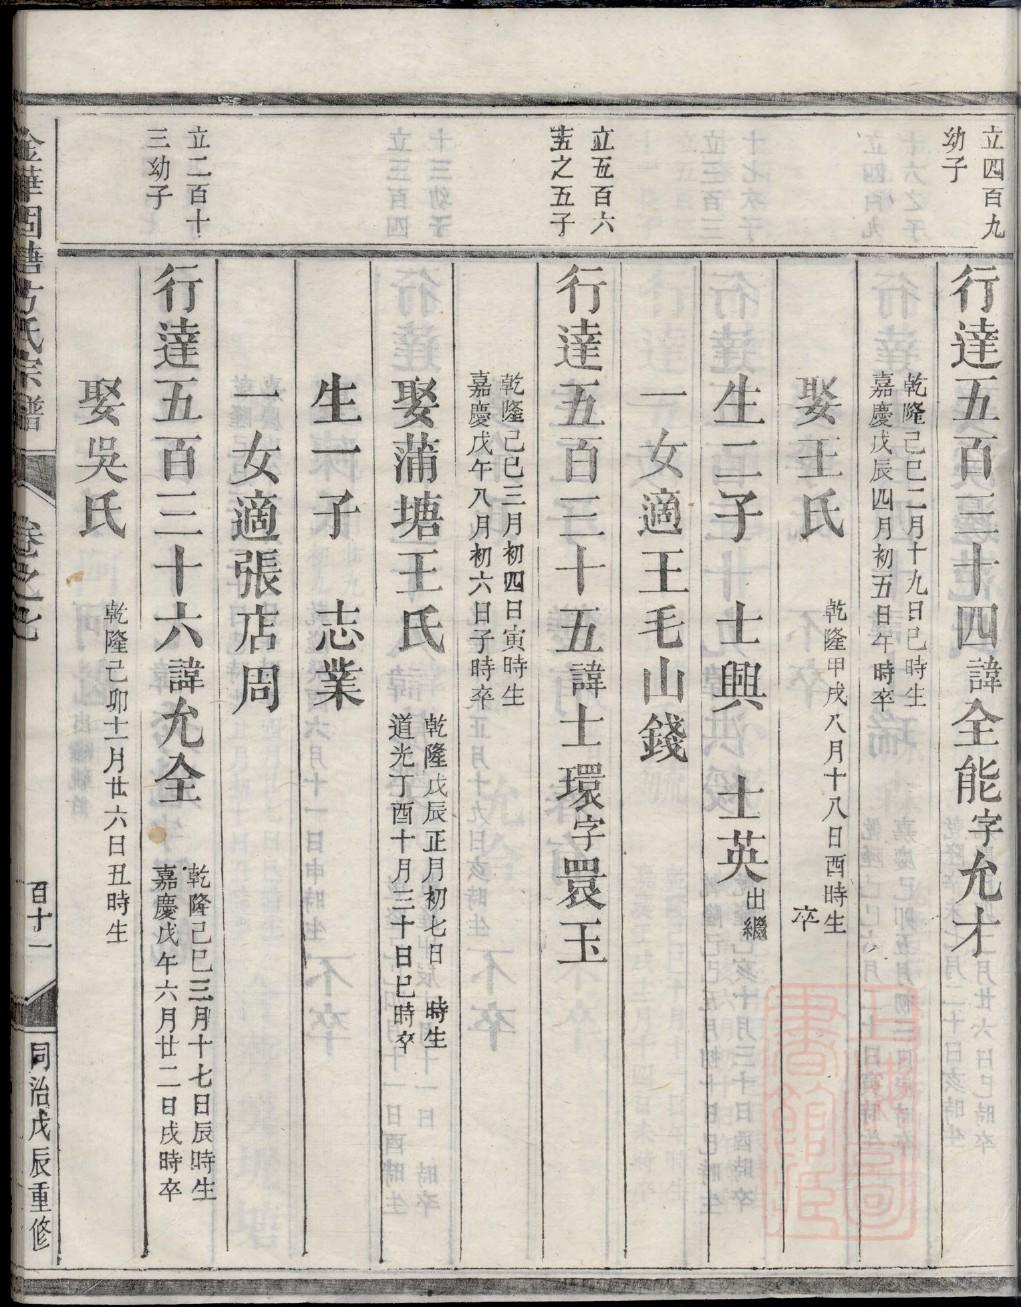 立四百九
幼子
行達五百三十四諱全能字允才
乾隆己巳二月十九日巳時生
嘉慶戊辰四月初五日午時卒
娶王氏
乾隆甲戌八月十八日酉時生
卒
生二子　士興　士英出繼
一女適王毛山錢
立五百六
十五之五子
行達五百三十五諱士環字睘玉
乾隆己巳三月初四日寅時生
嘉慶戊午八月初六日子時卒
娶蒲塘王氏
乾隆戊辰正月初七日　時生
道光丁酉十月三十日巳時卒
生一子　志業
一女適張店周
立二百十
三幼子
行達五百三十六諱允全
乾隆己巳三月十七日辰時生
嘉慶戊午六月廿二日戌時卒
娶吳氏
乾隆己卯十一月廿六日丑時生
金華固塘方氏宗譜
卷之七
百十一
同治戊辰重修